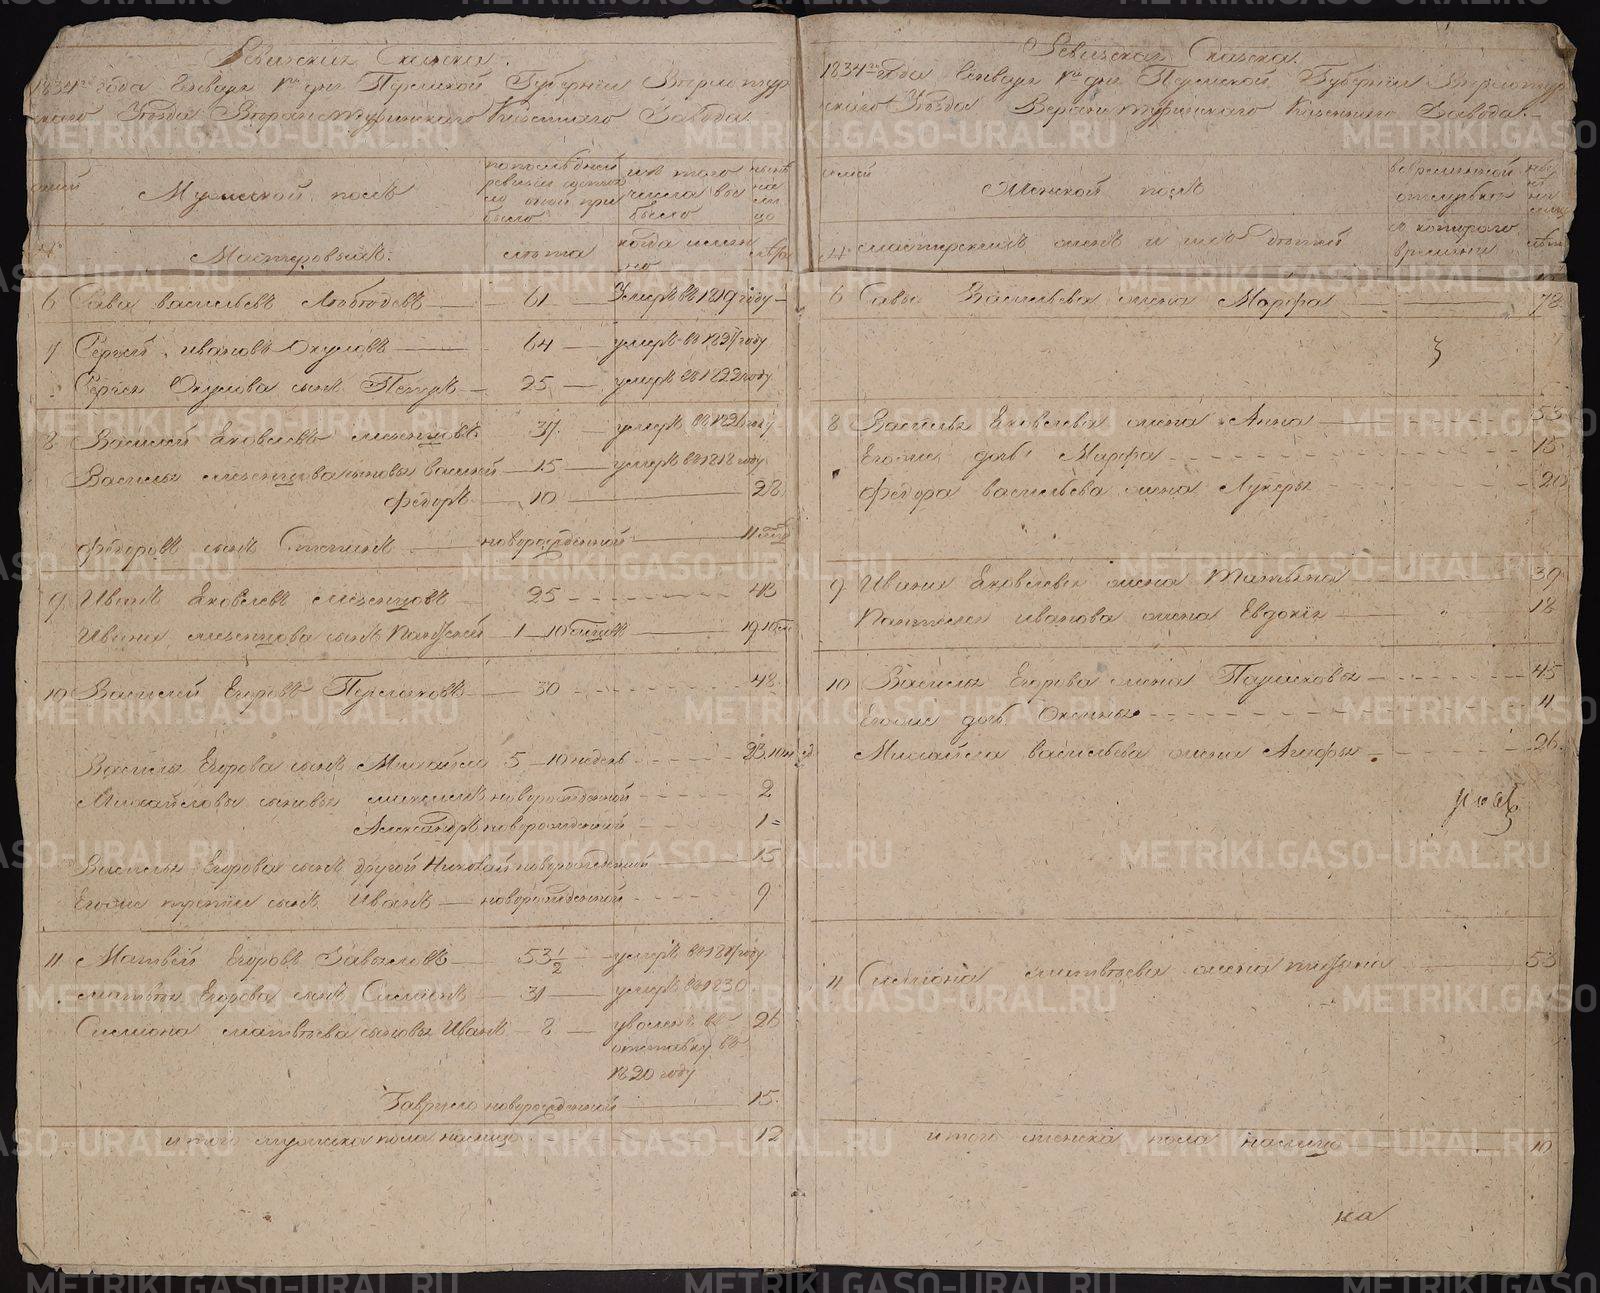 Ревизская Сказка.
1834го года Генваря 1го дня Пермской Губернии Верхотур
скаго Уезда Верхнетуринскаго Казеннаго Завода.
семей
Мужеской полъ
по последней ревизии состояло и после оной прибыло
изъ того числа выбыло
ныне на лицо
Мастеровыхъ.
лета
когда именно
лета
6 Сава Васильевъ 61 Умеръ въ 1819 году
7 Сергей Ивановъ Окуловъ 64 умеръ въ 1827 году
Сергея Окулова сынъ Петръ 25 умеръ въ 1822 году
8 Василей Яковлевъ Мезенцовъ 37 умеръ въ 1826 году
Василья Мезенцова сыновья Василей 15 умеръ въ 1818 году
Федоръ 10 28
Федоровъ сынъ Степанъ новорожденной 11
9 Иванъ Яковлевъ Мезенцовъ 25 43
Ивана Мезенцова сынъ Пантелей 1 10
10 Василей Егоровъ 30 48
Василья Егорова сынъ Михайло 5 10 недель 23
Михайловы сыновья новорожденной 2
Александръ новорожденной 1
Василья Егорова сынъ другой Николай новорожденной 15
Егоже третий сынъ Иванъ новорожденной 9
11 Матвей Егоровъ Заваловъ 53 1/2 умеръ въ году
Матвея Егорова сынъ Симионъ 31 умеръ въ 1830
Симиона Матвеева сыновья Иванъ 8 уволенъ въ 26
отставку въ
1820 году
Гаврило новорожденной 15
итого мужеска пола налицо 12
Ревизская Сказка.
1834го года Генваря 1го дня Пермской Губернии Верхотур
скаго Уезда Верхнетуринскаго Казеннаго Завода.
семей
Женской полъ
во временной отлучке
ныне на лицо
мастерскихъ женъ и ихъ детей
съ котораго времени
лета
6 Савы Васильева жена Марфа 78
8 Василья Яковлева жена Анна 53
Егоже дочь Марфа 15
Федора Васильева жена Лукерья 20
9 Ивана Яковлева жена Татьяна 39
Пантелея Иванова жена Евдокия 18
10 Василья Егорова жена Парасковья 45
Егоже дочь Оксинья 11
Михайла Васильева жена Агафья 26
11 Симиона Матвеева жена 53
итого женска пола налицо 10
на
METRIKI.GASO-URAL.RU